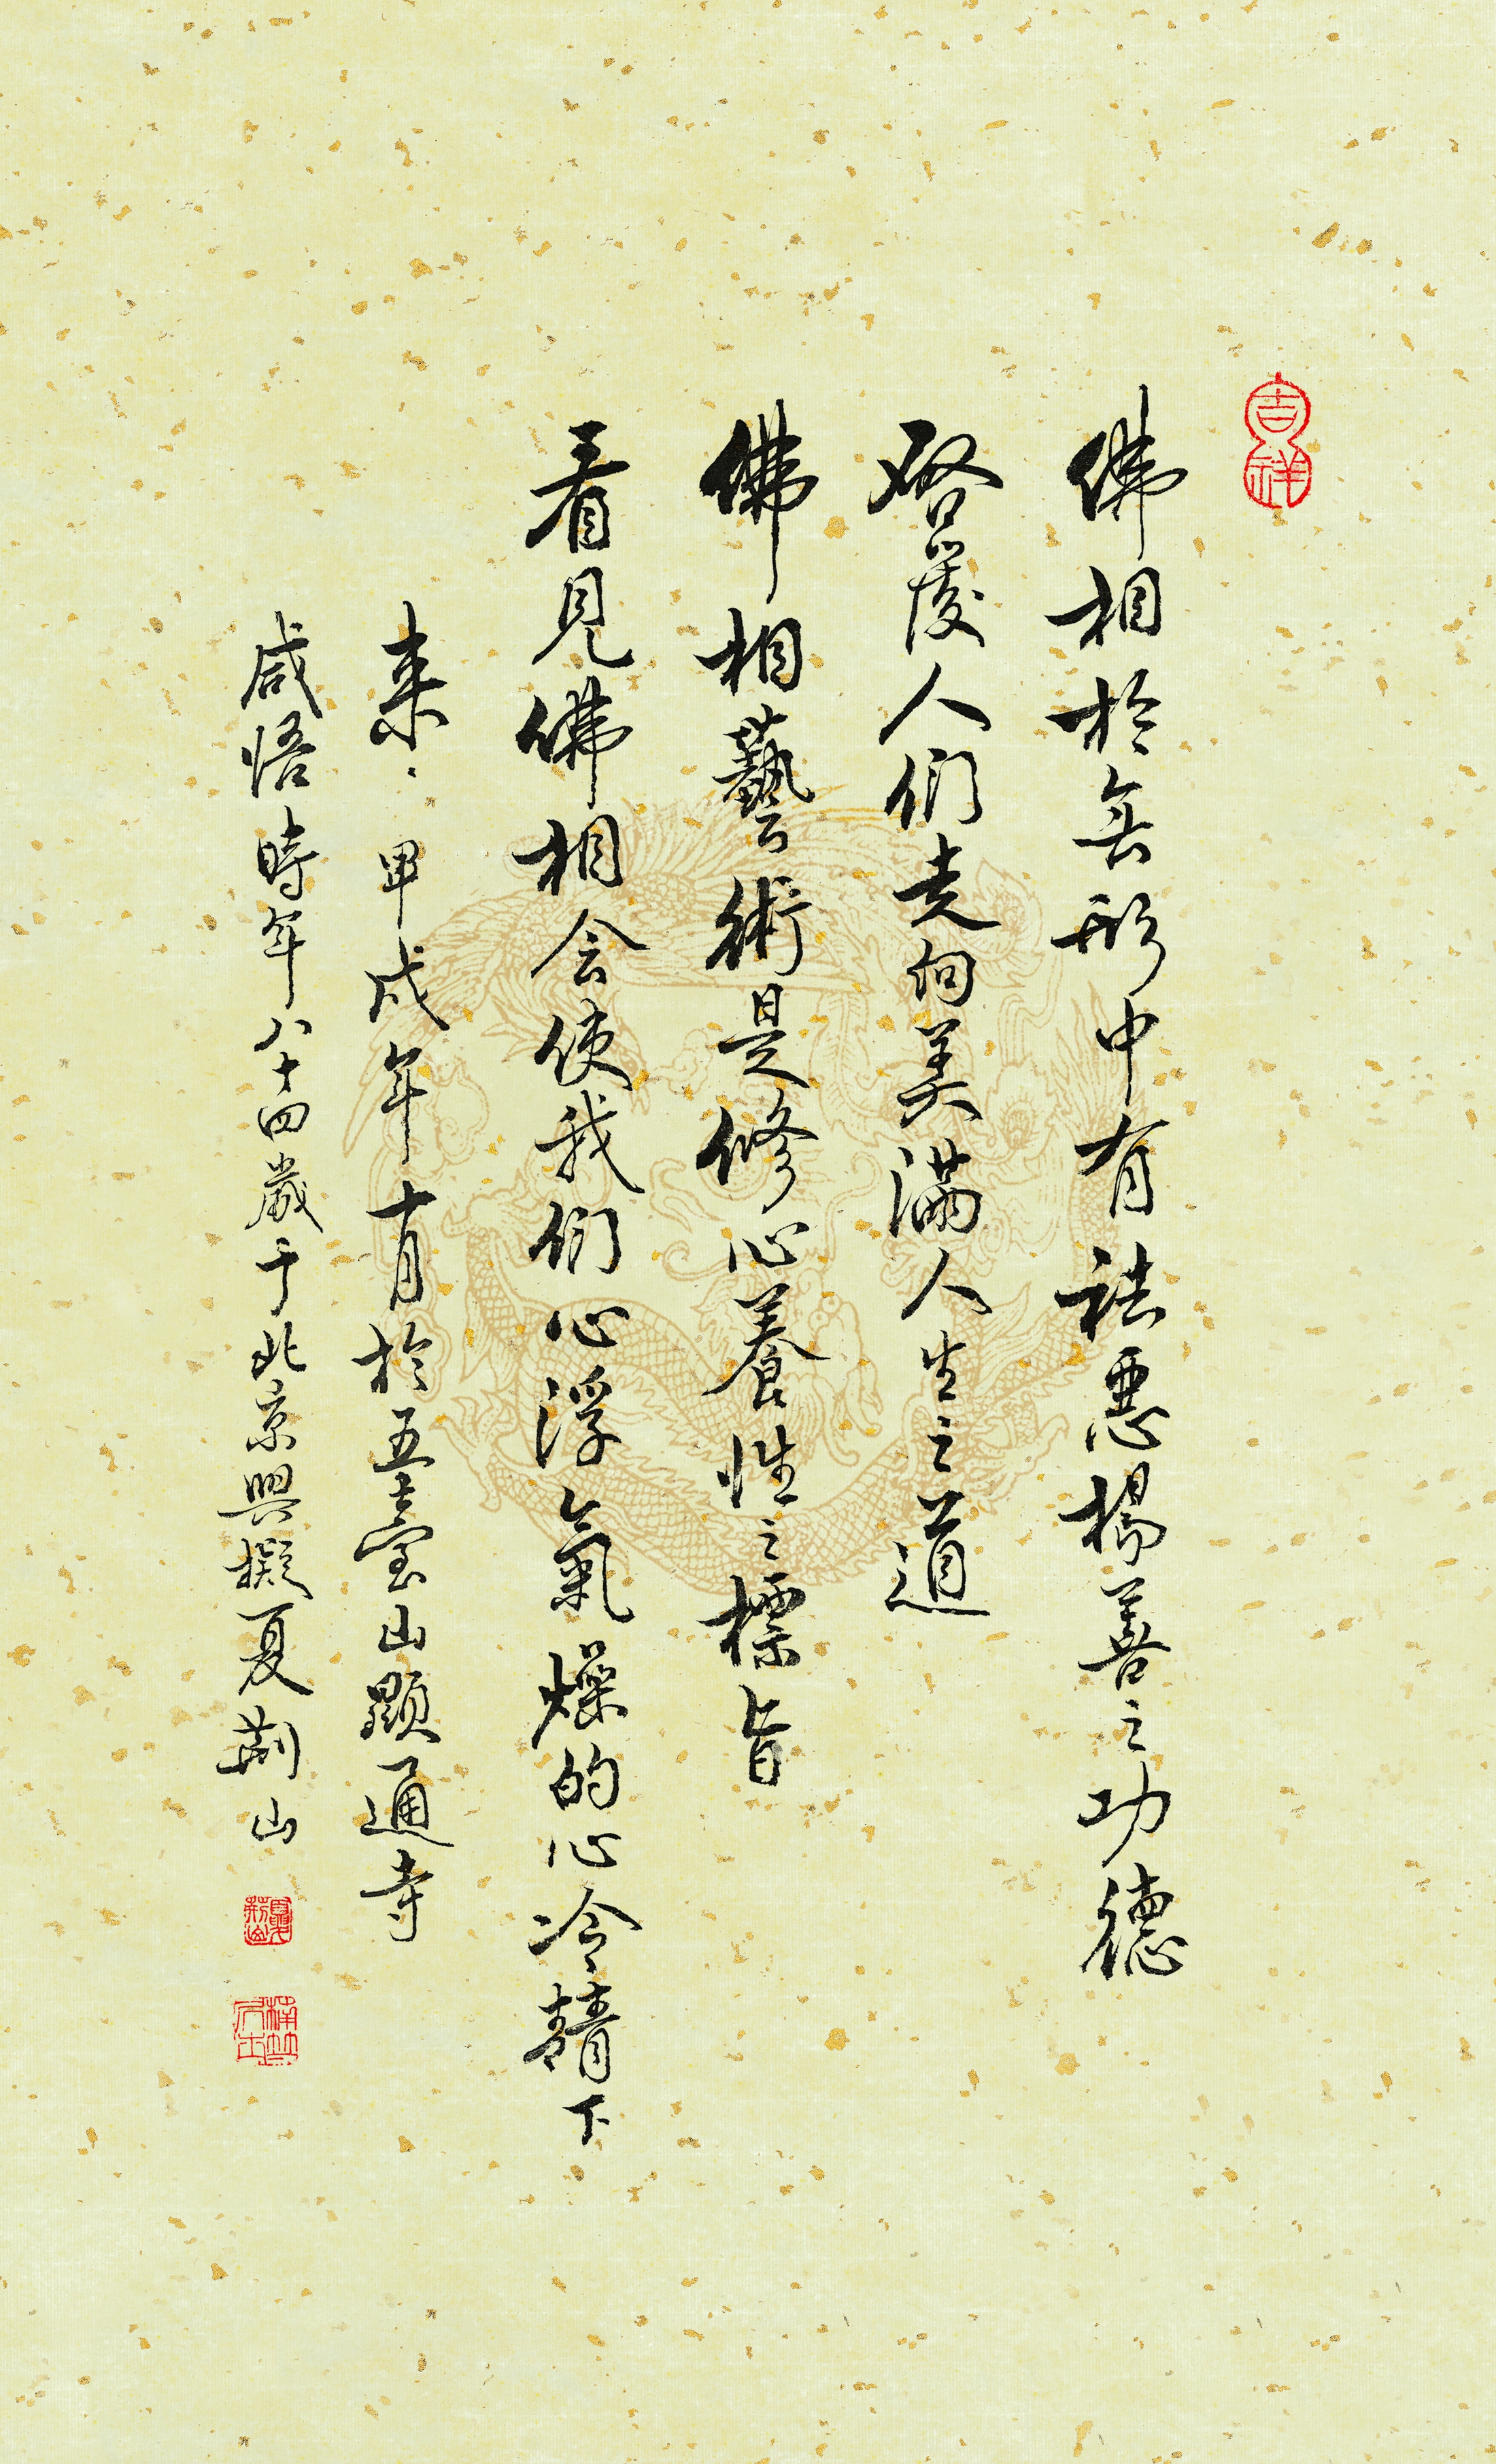 吉祥
佛相於無形中有祛惡楊善之功德
啓發人們走向美滿人生之道
佛相藝術是修心養性之標旨
看見佛相会使我們心浮氣燥的心冷靜下
来、甲戌年十月於五臺山顯通寺
感悟時年八十四歲于北京興撰夏荆山
夏荆山